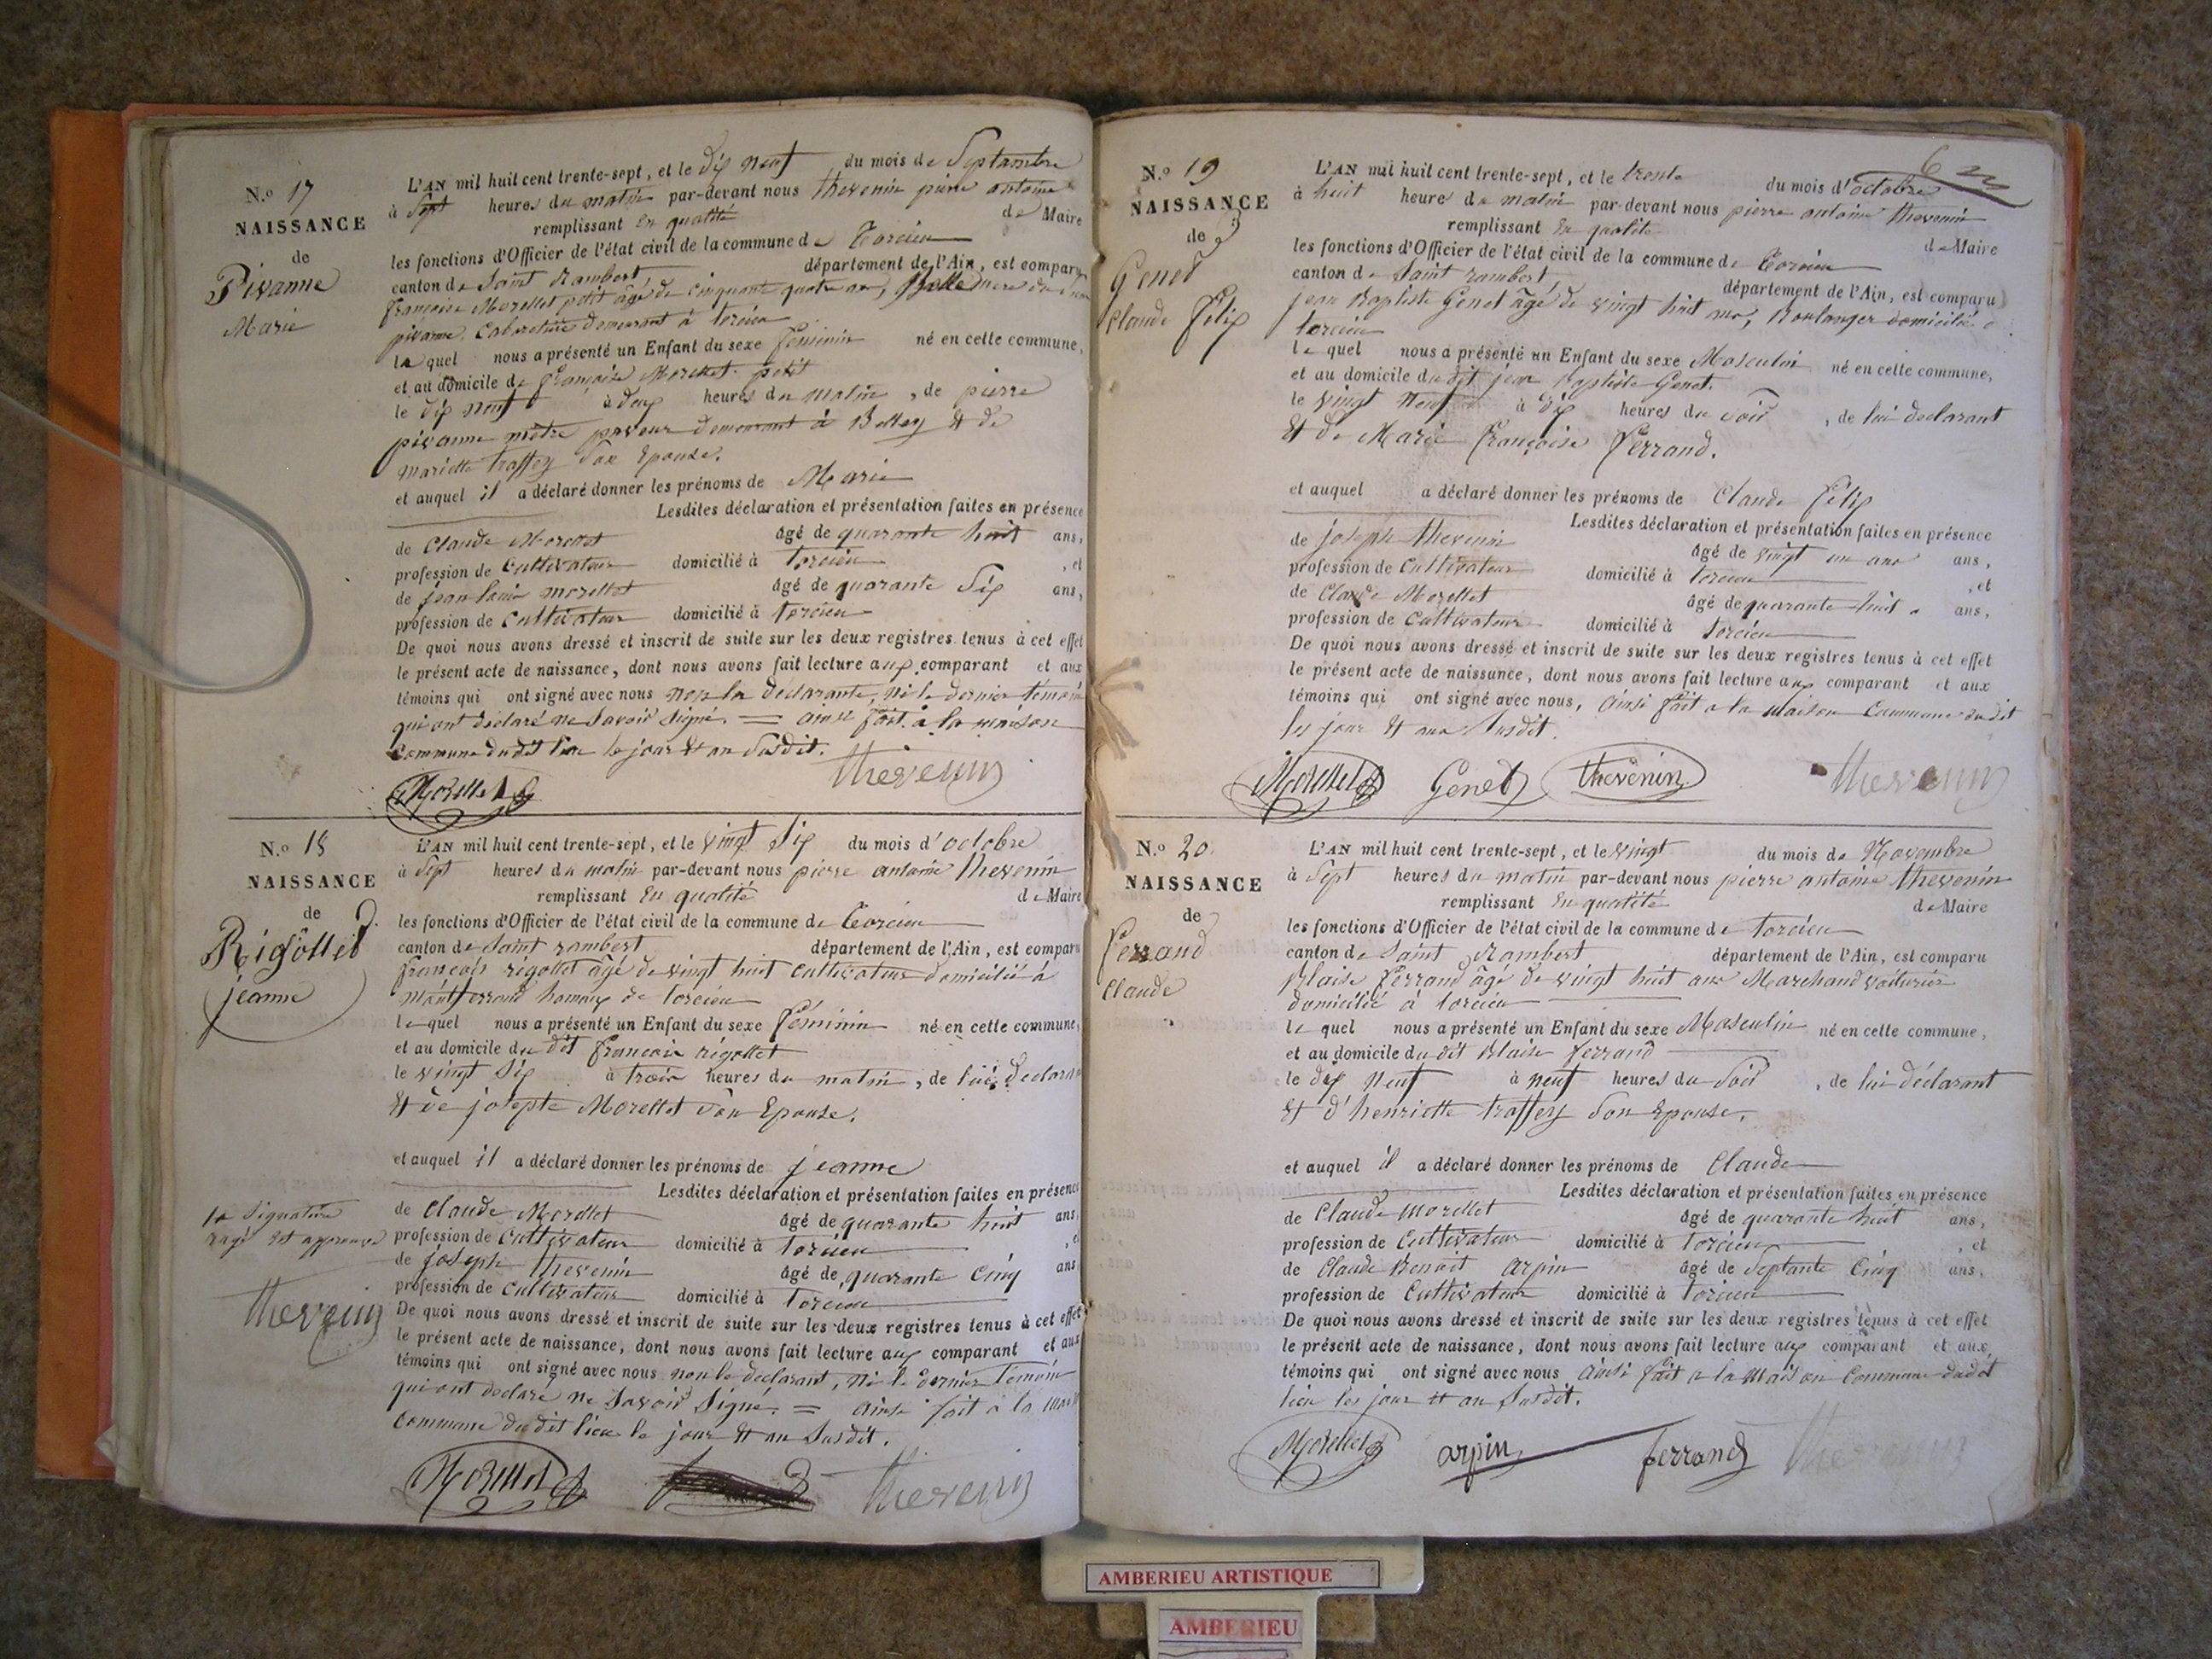 N.o 17
NAISSANCE
de
Pivanne
Marie
L'AN mil huit cent trente-sept, et le dix neuf du mois de Septambre
à Sept heures du matin par-devant nous thevenin pierre antoine
remplissant en qualité de Maire
les fonctions d'Officier de l'état civil de la commune de torcieu
canton de Saint Rambert département de l'Ain, est comparu
françoise Morellet petit âgé de cinquante quatre ans, Belle mere du
pivanne, Cabaretière demeurant à torcieu
la quel nous a présenté un Enfant du sexe feminin né en cette commune,
et au domicile de françoise Morellet petit
le dix neuf à deux heures du matin, de pierre
pivanne metre paveur demeurant à Belley et de
mariette traffey Son Epouse.
et auquel il a déclaré donner les prénoms de Marie
Lesdites déclaration et présentation faites en présence
de Claude Morellet âgé de quarante huit ans,
profession de Cultivateur domicilié à torcieu, et
de jean louis morellet âgé de quarante Six ans,
profession de Cultivateur domicilié à torcieu
De quoi nous avons dressé et inscrit de suite sur les deux registres tenus à cet effet
le présent acte de naissance, dont nous avons fait lecture aux comparant et aux
témoins qui ont signé avec nous non la déclarante, ni le dernier témoin
qui ont déclaré ne Savoir Signé. = ainsi fait à la maison
Commune dudit lieu le jour et an Susdit.
Morellet thevenin
N.o 18
NAISSANCE
de
Rigollet
jeanne
L'AN mil huit cent trente-sept, et le vingt Six du mois d'octobre
à Sept heures du matin par-devant nous pierre antoine thevenin
remplissant En qualité de Maire
les fonctions d'Officier de l'état civil de la commune de torcieu
canton de Saint rambert département de l'Ain, est comparu
françois rigollet âgé de vingt huit Cultivateur domicilié à
montferrand hameau de torcieu
le quel nous a présenté un Enfant du sexe féminin né en cette commune,
et au domicile du dit françois rigollet
le vingt Six à trois heures du matin, de lui declarant
et de josepte Morellet Son Epouse.
et auquel il a déclaré donner les prénoms de jeanne
Lesdites déclaration et présentation faites en présence
de Claude Morellet âgé de quarante huit ans,
profession de Cultivateur domicilié à torcieu, et
de joseph thevenin âgé de quarante Cinq ans
profession de Cultivateur domicilié à torcieu
De quoi nous avons dressé et inscrit de suite sur les deux registres tenus à cet effet
le présent acte de naissance, dont nous avons fait lecture aux comparant et aux
témoins qui ont signé avec nous non le declarant, ni le dernier témoin
qui ont declaré ne Savoir Signé. = ainsi fait à la maison
Commune dudit lieu le jour et an Susdit.
la Signature
rayé est approuvé
thevenin
Morellet thevenin
6
N.o 19
NAISSANCE
de
Genet
Claude félix
L'AN mil huit cent trente-sept, et le trente du mois d'octobre
à huit heures du matin par-devant nous pierre antoine thevenin
remplissant En qualité de Maire
les fonctions d'Officier de l'état civil de la commune de torcieu
canton de Saint rambert département de l'Ain, est comparu
jean Baptiste Genet âgé de vingt huit ans, Boulanger domicilié à
torcieu
le quel nous a présenté un Enfant du sexe Masculin né en cette commune,
et au domicile du dit jean Baptiste Genet.
le vingt neuf à dix heures du Soir, de lui declarant
et de Marie françoise ferrand.
et auquel a déclaré donner les prénoms de Claude félix
Lesdites déclaration et présentation faites en présence
de joseph thevenin âgé de vingt un ans ans,
profession de Cultivateur domicilié à torcieu, et
de Claude Morellet âgé de quarante huit ans,
profession de Cultivateur domicilié à torcieu
De quoi nous avons dressé et inscrit de suite sur les deux registres tenus à cet effet
le présent acte de naissance, dont nous avons fait lecture aux comparant et aux
témoins qui ont signé avec nous, ainsi fait a la maison Commune dudit
les jour et an Susdit.
Morellet Genet thevenin thevenin
N.o 20
NAISSANCE
de
ferrand
Claude
L'AN mil huit cent trente-sept, et le vingt du mois de Novembre
à Sept heures du matin par-devant nous pierre antoine thevenin
remplissant En qualité de Maire
les fonctions d'Officier de l'état civil de la commune de torcieu
canton de Saint Rambert département de l'Ain, est comparu
Blaise ferrand âgé de vingt huit ans Marchand voiturier
domicilié à torcieu
le quel nous a présenté un Enfant du sexe Masculin né en cette commune,
et au domicile du dit Blaise ferrand
le dix neuf à neuf heures du Soir, de lui déclarant
et d'henriette traffey Son Epouse.
et auquel il a déclaré donner les prénoms de Claude
Lesdites déclaration et présentation faites en présence
de Claude morellet âgé de quarante huit ans,
profession de Cultivateur domicilié à torcieu, et
de Claude Benoit arpin âgé de Septante Cinq ans.
profession de Cultivateur domicilié à torcieu
De quoi nous avons dressé et inscrit de suite sur les deux registres tenus à cet effet
le présent acte de naissance, dont nous avons fait lecture aux comparant et aux
témoins qui ont signé avec nous ainsi fait a la maison Commune dudit
lieu les jour et an Susdit.
Morellet arpin ferrand thevenin
AMBERIEU ARTISTIQUE
AMBERIEU